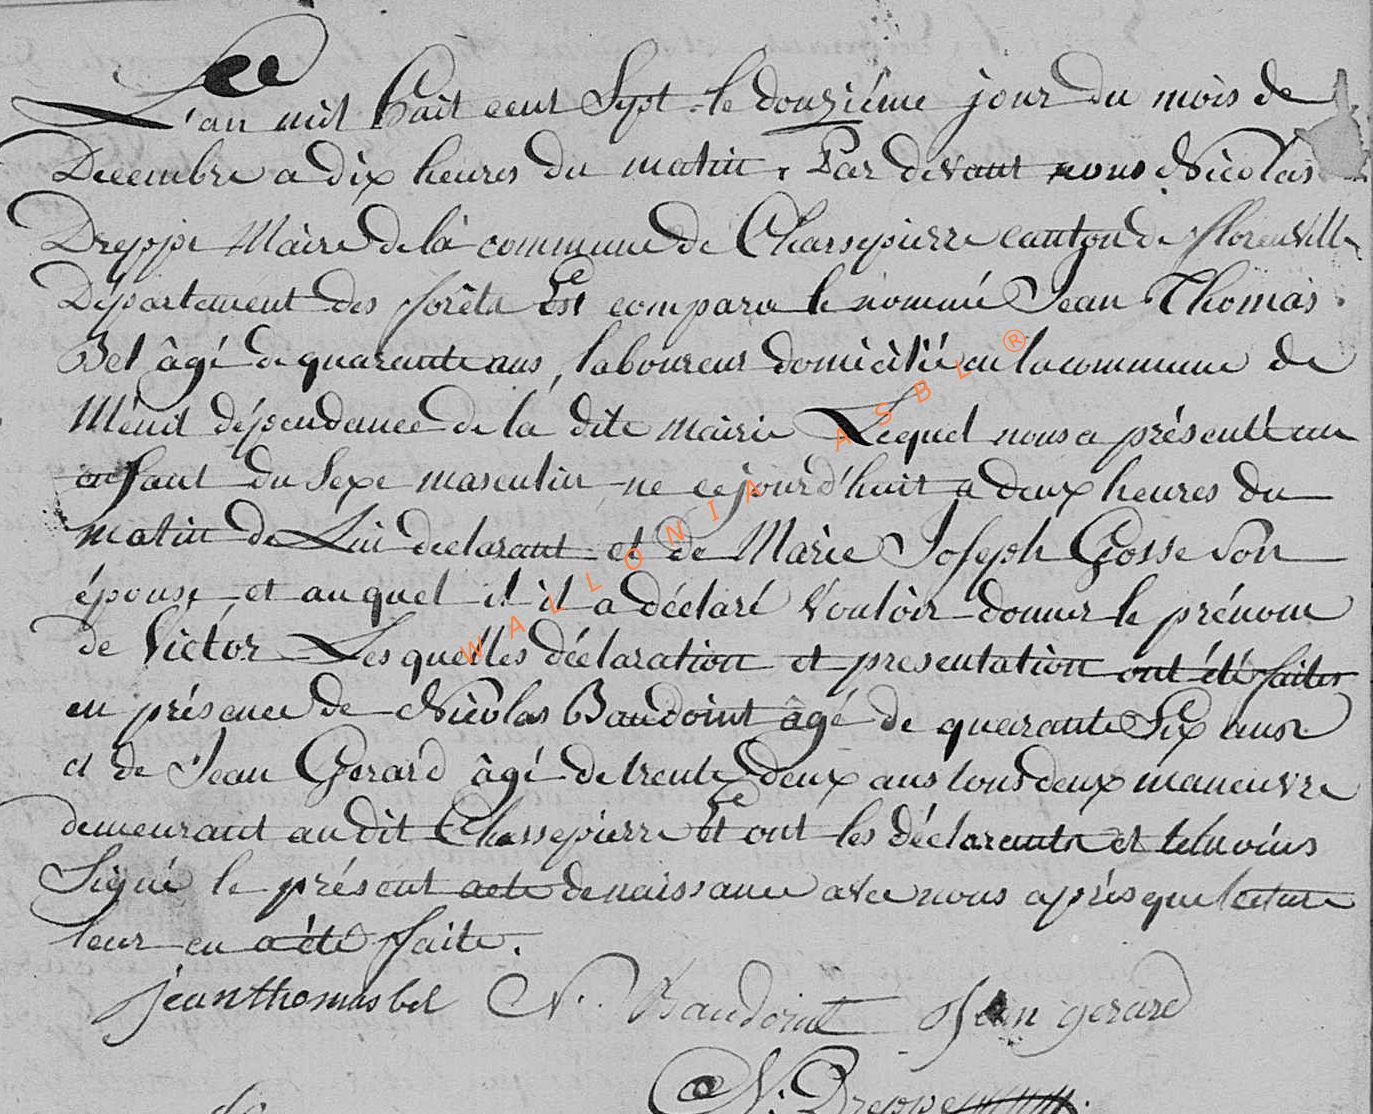 L'an mil huit cent Sept le douzième jour du mois de
Decembre a dix heures du matin, Par devant nous Nicolas
Dreppe Maire de la commune de Chassepierre canton de florenville
Département des forêts Est comparu le nommé Jean Thomas
Bel âgé de quarante ans, laboureur domicilié en la commune de
Ménil dépendance de la dite mairie Lequel nous a présenté un
enfant du Sexe masculin ne cejourd'huit a deux heures du
matin de Lui declarant et de Marie Joseph Gosse Son
épouse et auquel il il a déclaré Vouloir donner le prénom
de Victor Lesquelles déclaration et presentation ont été faites
en présence de Nicolas Baudoint âgé de quarante Six ans
et de Jean Gerard âgé de trente deux ans tous deux maneuvre
demeurant audit Chassepierre Et ont les déclarants et témoins
Signé le présent acte de naissance avec nous après que lecture
leur en a été faite.
jean thomas bel N. Baudoint Jean gerard
N. Dreppe
WALLONIA ASBL ®